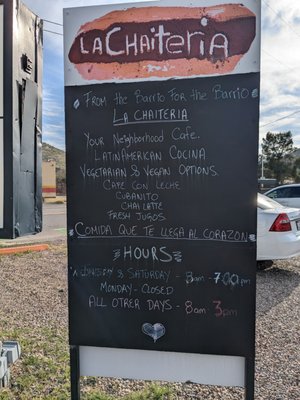 LA CHAITERIA
FROM THE BARRIO FOR THE BARRIO
LA CHAITERIA
YOUR NEIGHBORHOOD CAFE.
LATINAMERICAN COCINA
VEGETARIAN & VEGAN OPTIONS.
CAFE CON LECHE
CUBANITO
CHAI LATTE
FRESH JUGOS
COMIDA QUE TE LLEGA AL CORAZON
HOURS
WEDNESDAY & SATURDAY - 8am - 7:00pm
MONDAY - CLOSED
ALL OTHER DAYS - 8am 3pm